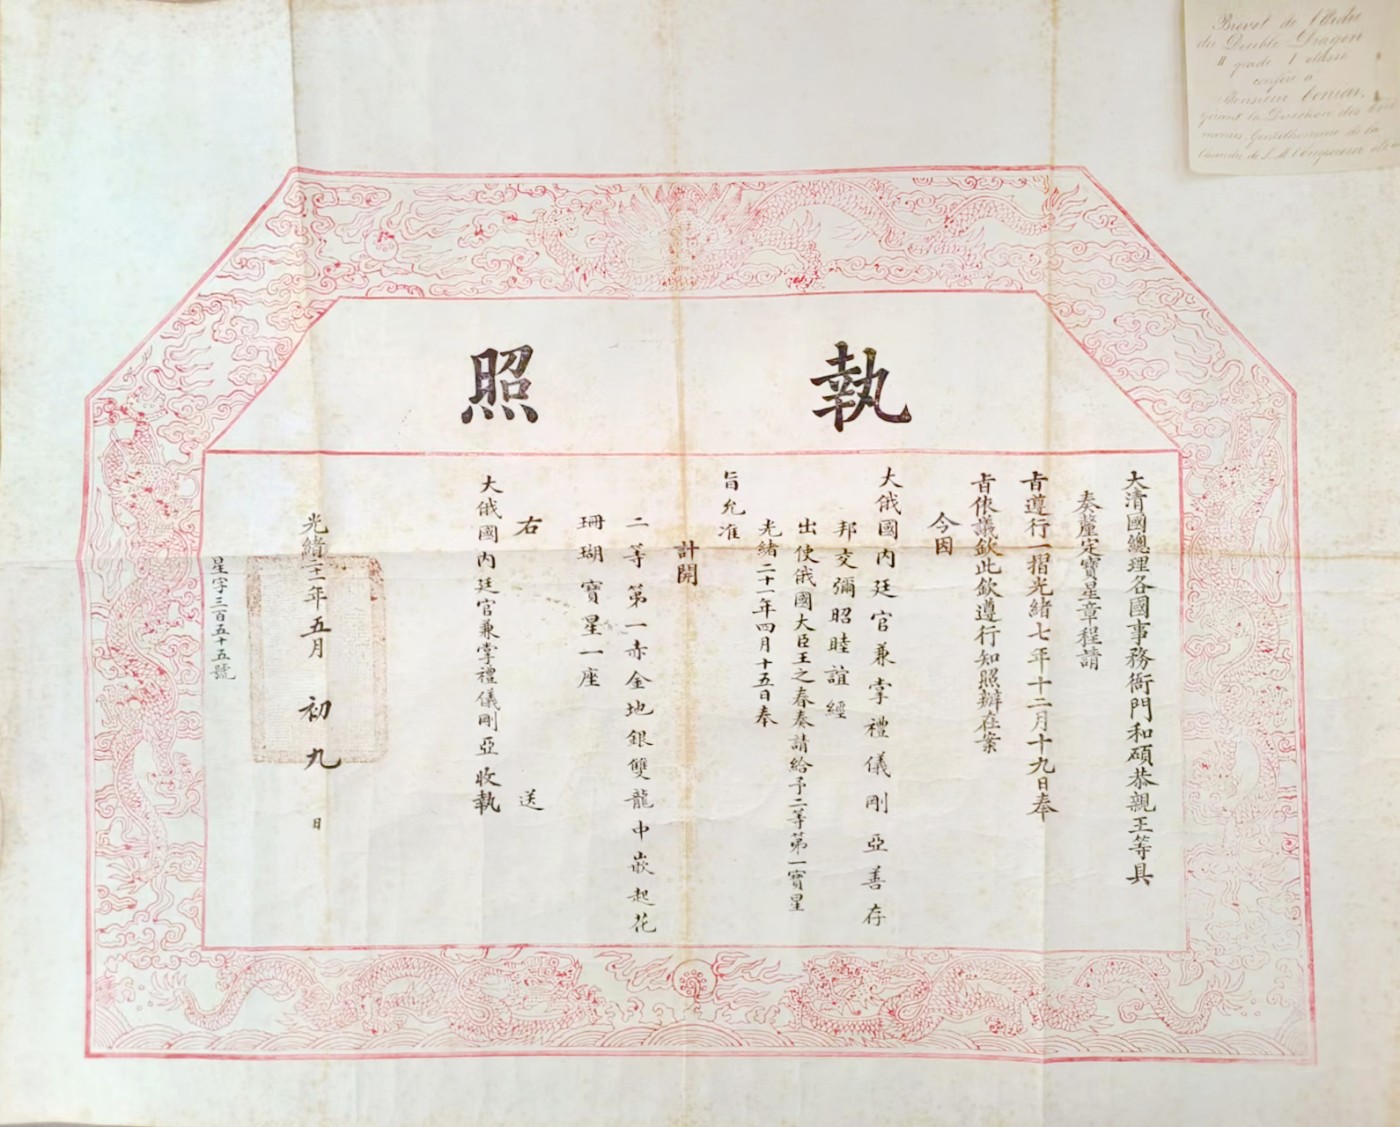 Brevet de l'Ordre
du Double Dragon
II grade 1 classe
conféré à
Monsieur
gérant la Direction des
monies, Gentilhomme de la
Chambre de S. M. l'Empereur
執照
大清國總理各國事務衙門和碩恭親王等具
奏釐定寶星章程請
旨遵行一摺光緒七年十二月十九日奉
旨依議欽此欽遵行知照辦在案
今因
大俄國內廷官兼掌禮儀剛亞善存
邦交彌昭睦誼經
出使俄國大臣王之春奏請給予二等第一寶星
光緒二十一年四月十五日奉
旨允准
計開
二等第一赤金地銀雙龍中嵌起花
珊瑚寶星一座
右 送
大俄國內廷官兼掌禮儀剛亞收執
光緒二十一年五月 初九 日
星字三百五十五號